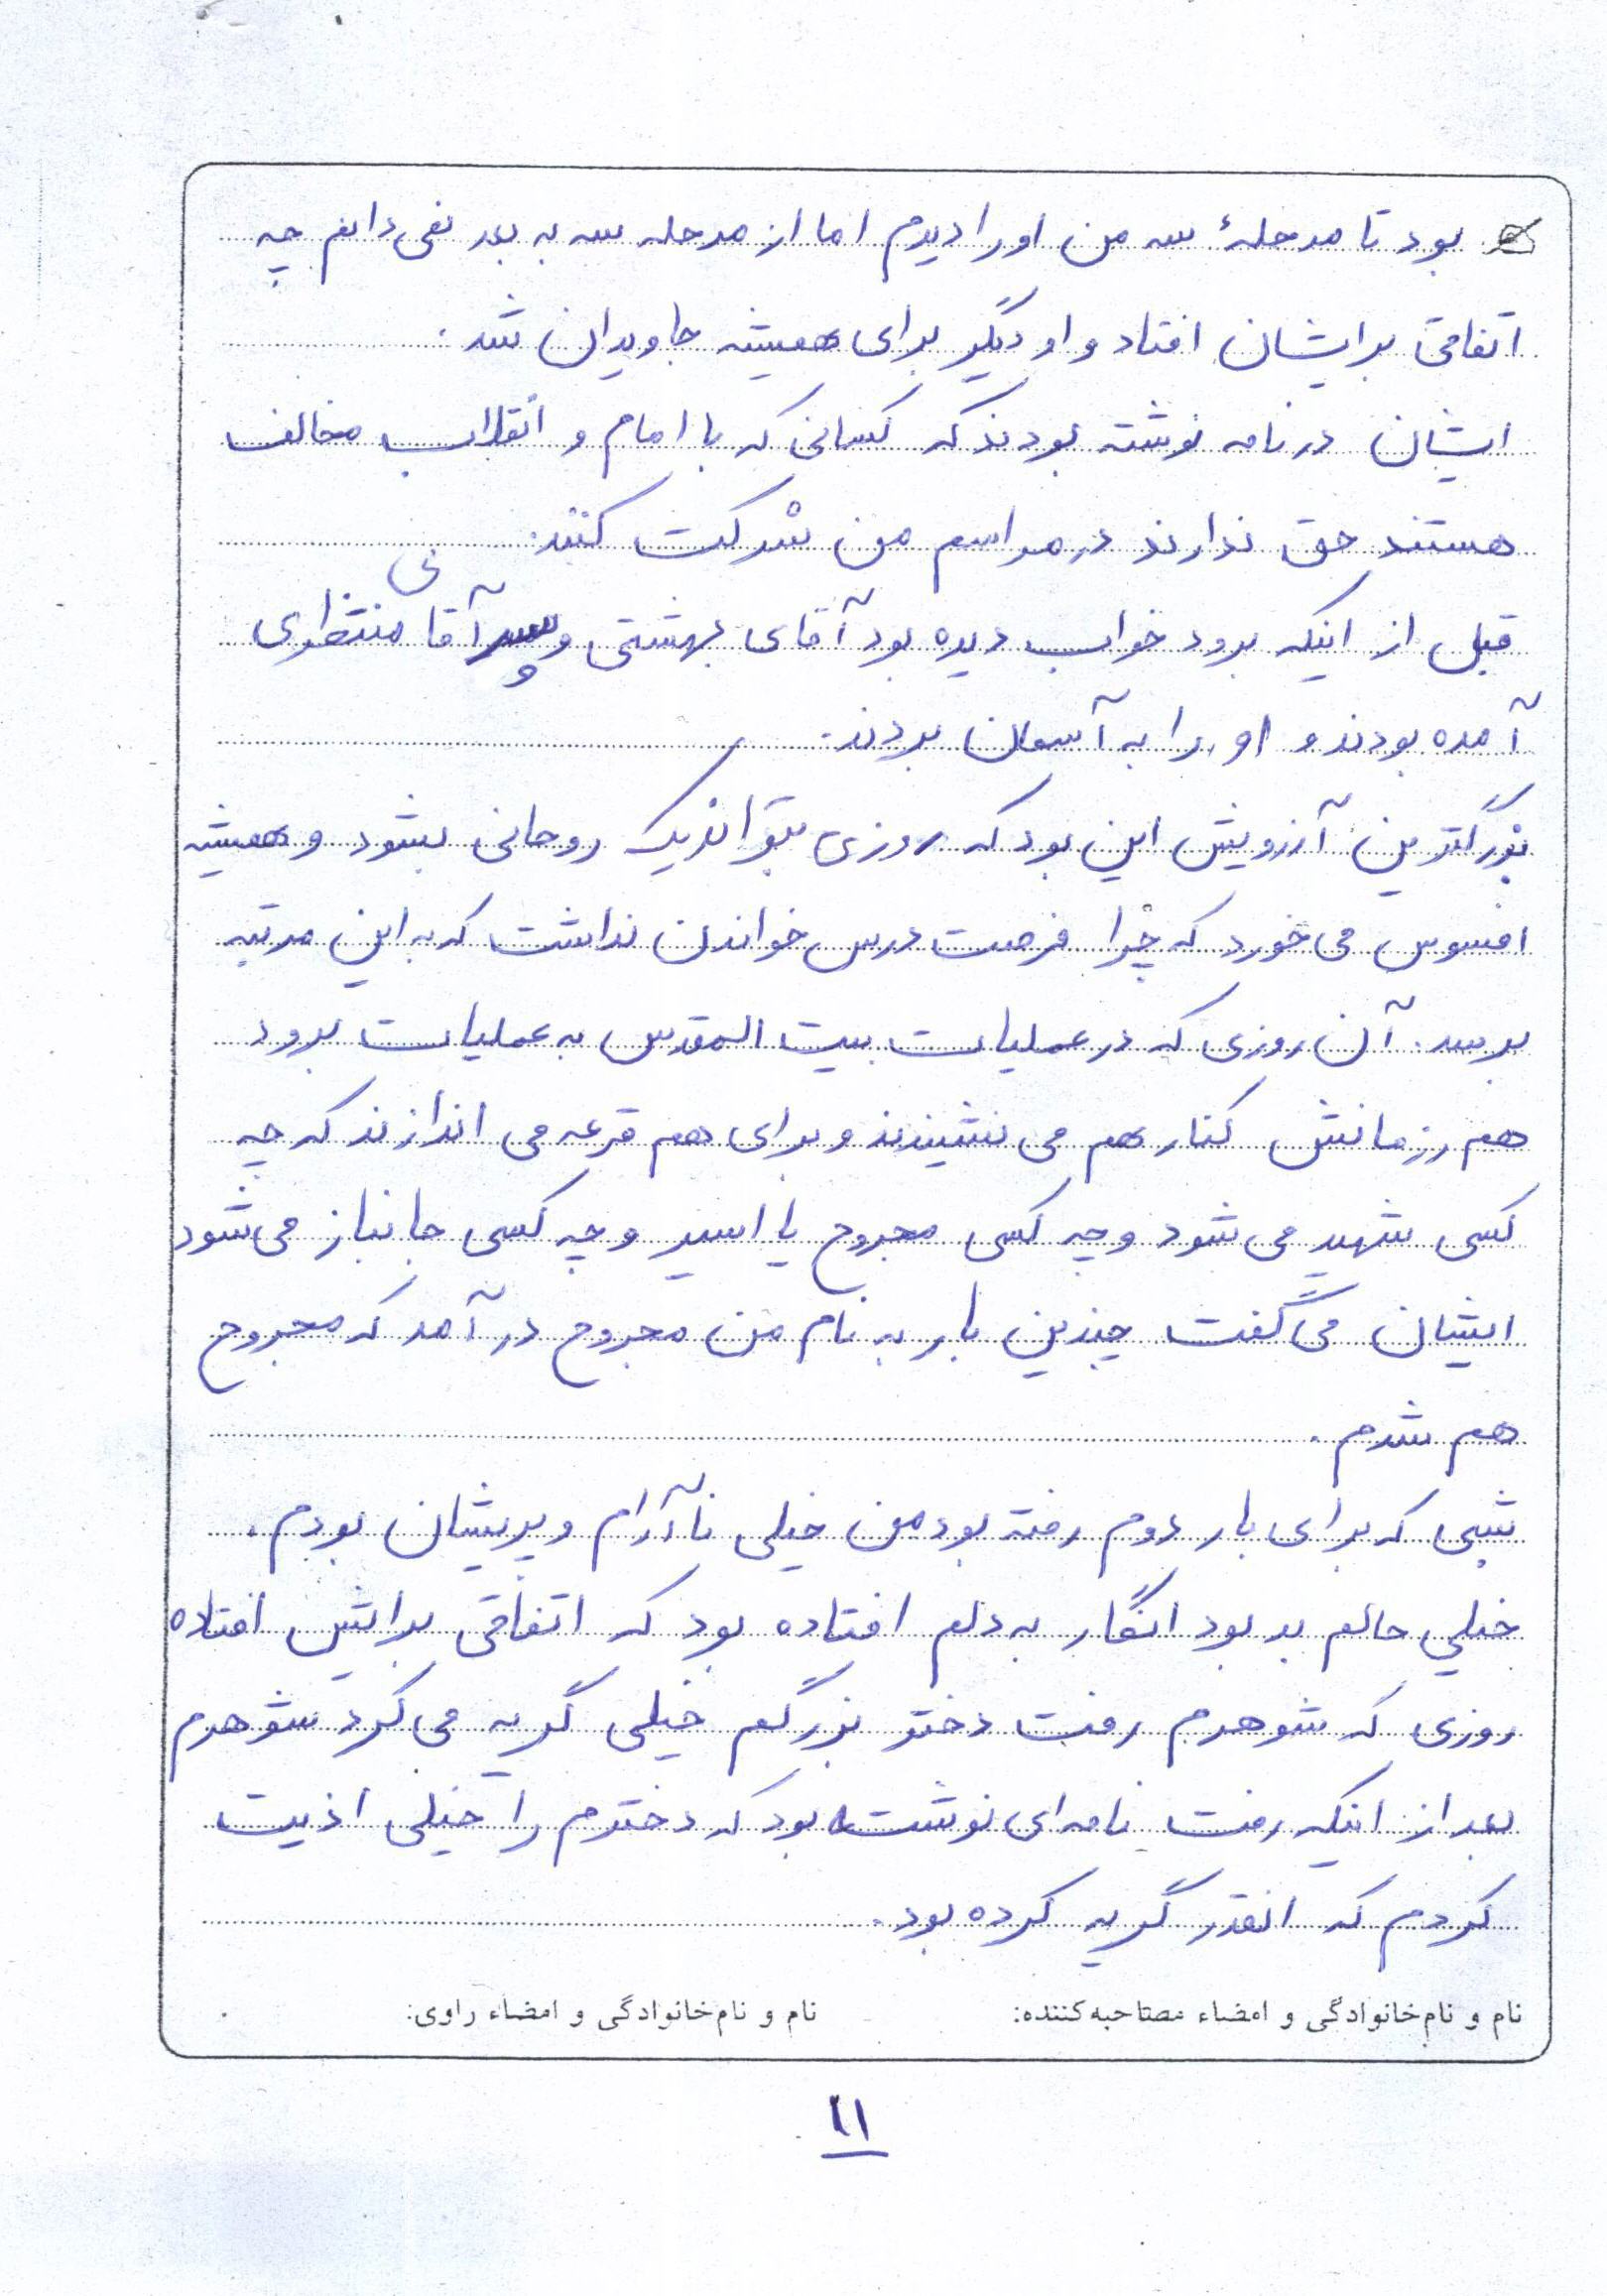 بود تا مرحلهٔ سه من او را دیدم اما از مرحله سه به بعد نمی دانم چه
اتفاقی برایشان افتاد و او دیگر برای همیشه جاویدان شد.
ایشان در نامه نوشته بودند که کسانی که با امام و انقلاب مخالف
هستند حق ندارند در مراسم من شرکت کنند.
قبل از اینکه برود خواب دیده بود آقای بهشتی و آقا منتظری
آمده بودند و او را به آسمان بردند.
بزرگترین آرزویش این بود که روزی بتواند یک روحانی بشود و همیشه
افسوس می خورد که چرا فرصت درس خواندن نداشت که به این مرتبه
برسد. آن روزی که در عملیات بیت المقدس به عملیات برود
هم رزمانش کنار هم می نشینند و برای هم قرعه می اندازند که چه
کسی شهید می شود و چه کسی مجروح یا اسیر و چه کسی جانباز می شود
ایشان می گفت چندین بار به نام من مجروح در آمد که مجروح
هم شدم.
شبی که برای بار دوم رفته بود من خیلی ناآرام و پریشان بودم.
خیلی حالم بد بود انگار به دلم افتاده بود که اتفاقی برایش افتاده
روزی که شوهرم رفت دختر بزرگم خیلی گریه می کرد شوهرم
بعد از اینکه رفت نامه ای نوشته بود که دخترم را خیلی اذیت
کردم که انقدر گریه کرده بود.
نام و نام خانوادگی و امضاء مصاحبه کننده: نام و نام خانوادگی و امضاء راوی: